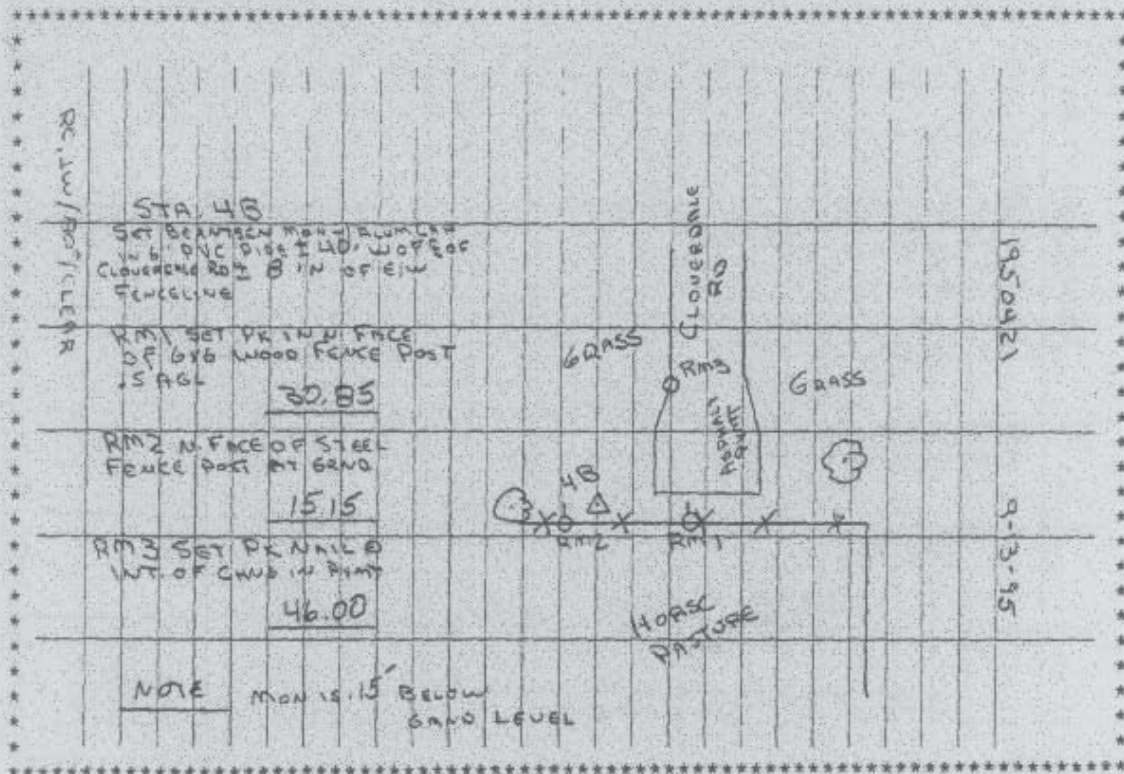 STA. 4B
SET BERNTSEN MON. ALUM CAP
IN 6" PVC PIPE ± 40' W OF
CLOVERDALE RD ± 8' N OF E/W
FENCELINE
RM1 SET PK IN N FACE
OF 6X6 WOOD FENCE POST
.5 AGL
30.85
RM2 N. FACE OF STEEL
FENCE POST AT GRND
15.15
RM3 SET PK NAIL @
INT. OF CHNG IN PVMT
46.00
NOTE MON IS .15' BELOW
GRND LEVEL
CLOVERDALE
RD
GRASS
RM3
GRASS
ASPHALT
4B
RM2
RM1
HORSE
PASTURE
RC, JW/80°/CLEAR
1950421
9-13-95